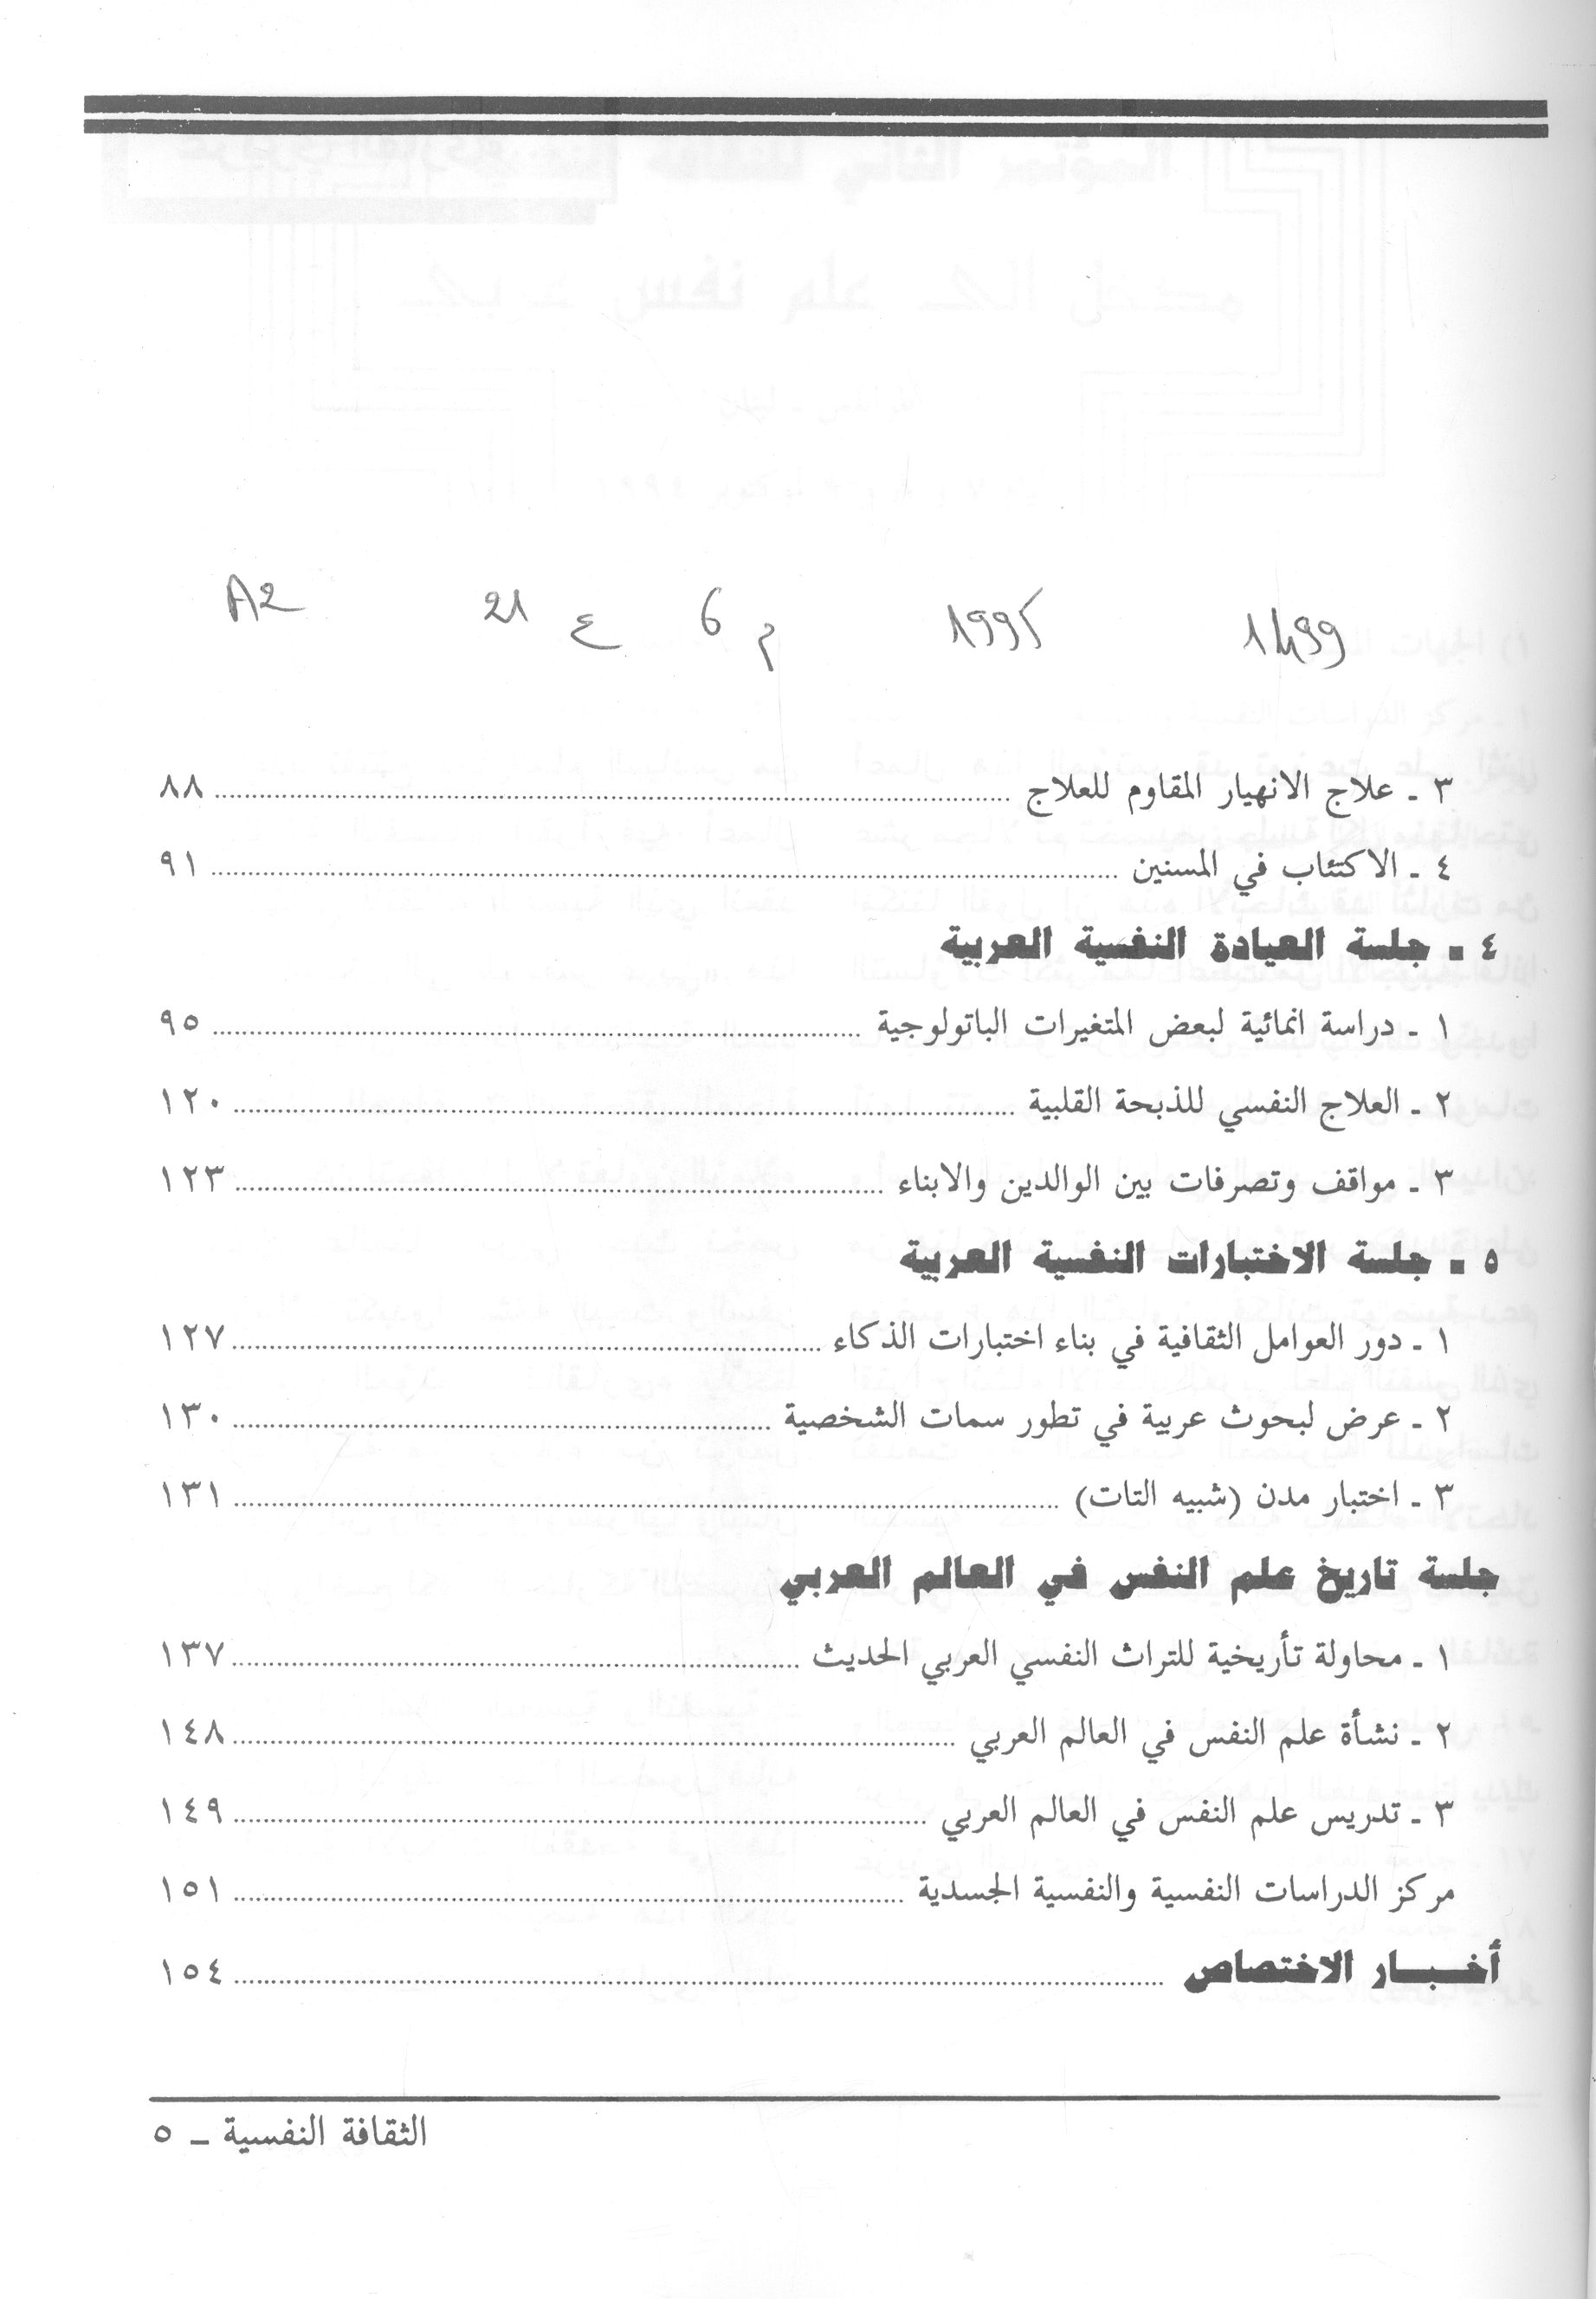 1499 1995 م 6 ع 21 A2
٣ ـ علاج الانهيار المقاوم للعلاج ........ ٨٨
٤ ـ الاكتئاب في المسنين ........ ٩١
٤ ـ جلسة العيادة النفسية العربية
١ ـ دراسة انمائية لبعض المتغيرات الباتولوجية ........ ٩٥
٢ ـ العلاج النفسي للذبحة القلبية ........ ١٢٠
٣ ـ مواقف وتصرفات بين الوالدين والابناء ........ ١٢٣
٥ ـ جلسة الاختبارات النفسية العربية
١ ـ دور العوامل الثقافية في بناء اختبارات الذكاء ........ ١٢٧
٢ ـ عرض لبحوث عربية في تطور سمات الشخصية ........ ١٣٠
٣ ـ اختبار مدن (شبيه التات) ........ ١٣١
جلسة تاريخ علم النفس في العالم العربي
١ ـ محاولة تأريخية للتراث النفسي العربي الحديث ........ ١٣٧
٢ ـ نشأة علم النفس في العالم العربي ........ ١٤٨
٣ ـ تدريس علم النفس في العالم العربي ........ ١٤٩
مركز الدراسات النفسية والنفسية الجسدية ........ ١٥١
أخبـــار الاختصاص ........ ١٥٤
الثقافة النفسية ـ ٥